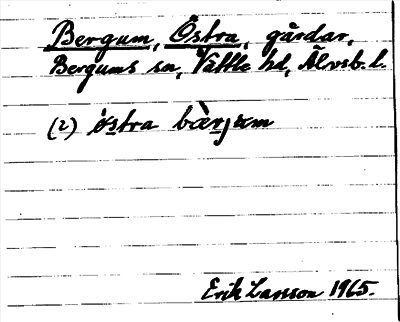 Bergum, Östra, gårdar,
Bergums sn, Vättle hd, Älvsb. l.
(2) östra bærjum
Erik Larsson 1965.